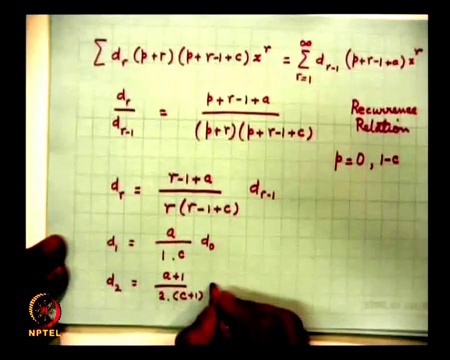 Σ d_r (p+r) (p+r-1+c) x^r = Σ_{r=1}^{∞} d_{r-1} (p+r-1+a) x^r
d_r / d_{r-1} = (p+r-1+a) / ((p+r)(p+r-1+c))
Recurrence
Relation
p=0, 1-c
d_r = (r-1+a) / (r(r-1+c)) d_{r-1}
d_1 = a / (1.c) d_0
d_2 = (a+1) / (2.(c+1))
NPTEL